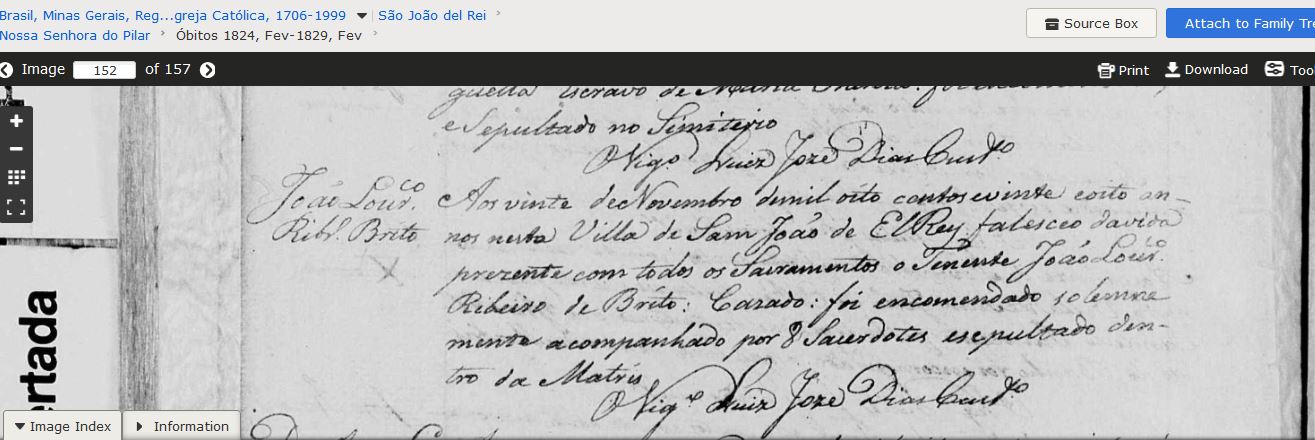 Brasil, Minas Gerais, Reg...greja Católica, 1706-1999 São João del Rei
Nossa Senhora do Pilar Óbitos 1824, Fev-1829, Fev
Source Box
Attach to Family Tre
Image 152 of 157
Print Download Tool
Escravo de Maria
e Sepultado no Simiterio
O Vigº. Luiz Joze Dias Custº
João Lourço.
Ribº. Brito
Aos vinte de Novembro de mil oito centos e vinte e oito an-
nos nesta Villa de Sam João de El Rey falesceo da vida
prezente com todos os Sacramentos o Tinente João Lourço.
Ribeiro de Brito: Cazado: foi encomendado solemne
mente acompanhado por 8 Sacerdotes e sepultado den-
tro da Matris
O Vigrº Luiz Joze Dias Custº
ertada
Image Index Information